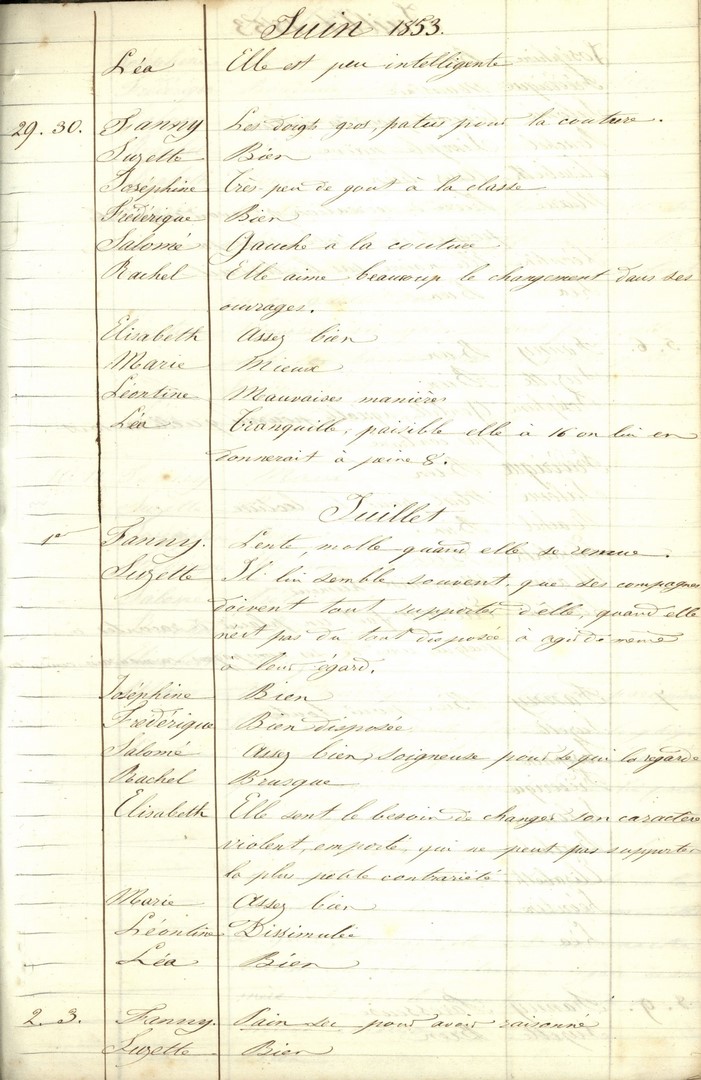 Juin 1853.
Léa Elle est peu intelligente
29. 30. Fanny Les doigts gros, patus pour la couture.
Suzette Bien
Joséphine très peu de gout à la classe
Frédérique Bien
Salomé Gauche à la couture
Rachel Elle aime beaucoup le changement dans ses
ouvrages.
Elisabeth Assez bien
Marie Mieux
Léontine Mauvaises manières
Léa Tranquille, paisible elle à 16 on lui en
donnerait à peine 8.
Juillet
1er Fanny. Lente, molle quand elle se remue.
Suzette Il lui semble souvent que ses compagnes
doivent tout supporter d'elle, quand elle
n'est pas du tout disposée à agir de même
à leur égard.
Joséphine Bien
Frédérique Bien disposée
Salomé Assez bien, soigneuse pour ce qui la regarde
Rachel Brusque
Elisabeth Elle sent le besoin de changer son caractère
violent, emporté, qui ne peut pas supporter
la plus petite contrariété
Marie Assez bien
Léontine Dissimulée
Léa Bien
2. 3. Fanny. Pain sec pour avoir raisonné
Suzette Bien